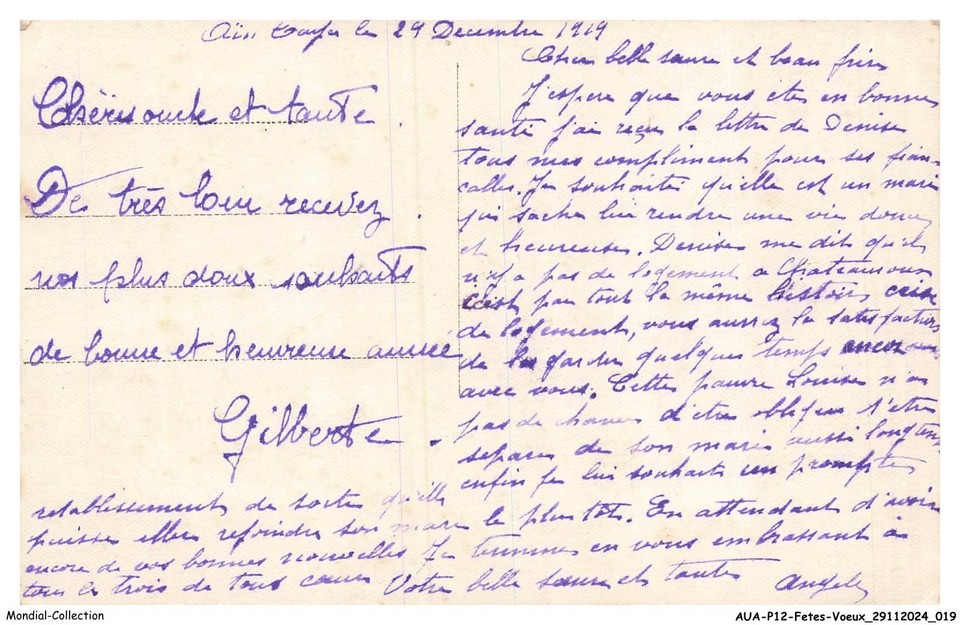 Aïn Taya le 29 Decembre 1919
Chéris oncle et tante
De très loin recevez
nos plus doux souhaits
de bonne et heureuse année
Gilberte
Cher belle sœure et beau frère
J'espere que vous êtes en bonne
santé j'ai reçu la lettre de Denise
tous mes compliment pour ses fian-
cailles. Je souhaite qu'elle est un mari
qui sache lui rendre une vie douce
et heureuse. Denise me dit qu'il
n'y a pas de logement a Chateauroux
c'est par tout la même histoire crise
de logement, vous aurrez la satisfaction
de la garder quelque temps encore
avec vous. Cette pauvre Louise n'a
pas de chance d'être obligée d'être
separer de son mari aussi longtemps
enfin je lui souhaite un prompte
retablissement de sorte qu'elle
puisse aller rejoindre son mari le plus tôt. En attendant d'avoir
encore de vos bonnes nouvelles Je termine en vous embrassant
tous les trois de tous cœur Votre belle sœure et tante Angele
Mondial-Collection
AUA-P12-Fetes-Voeux_29112024_019